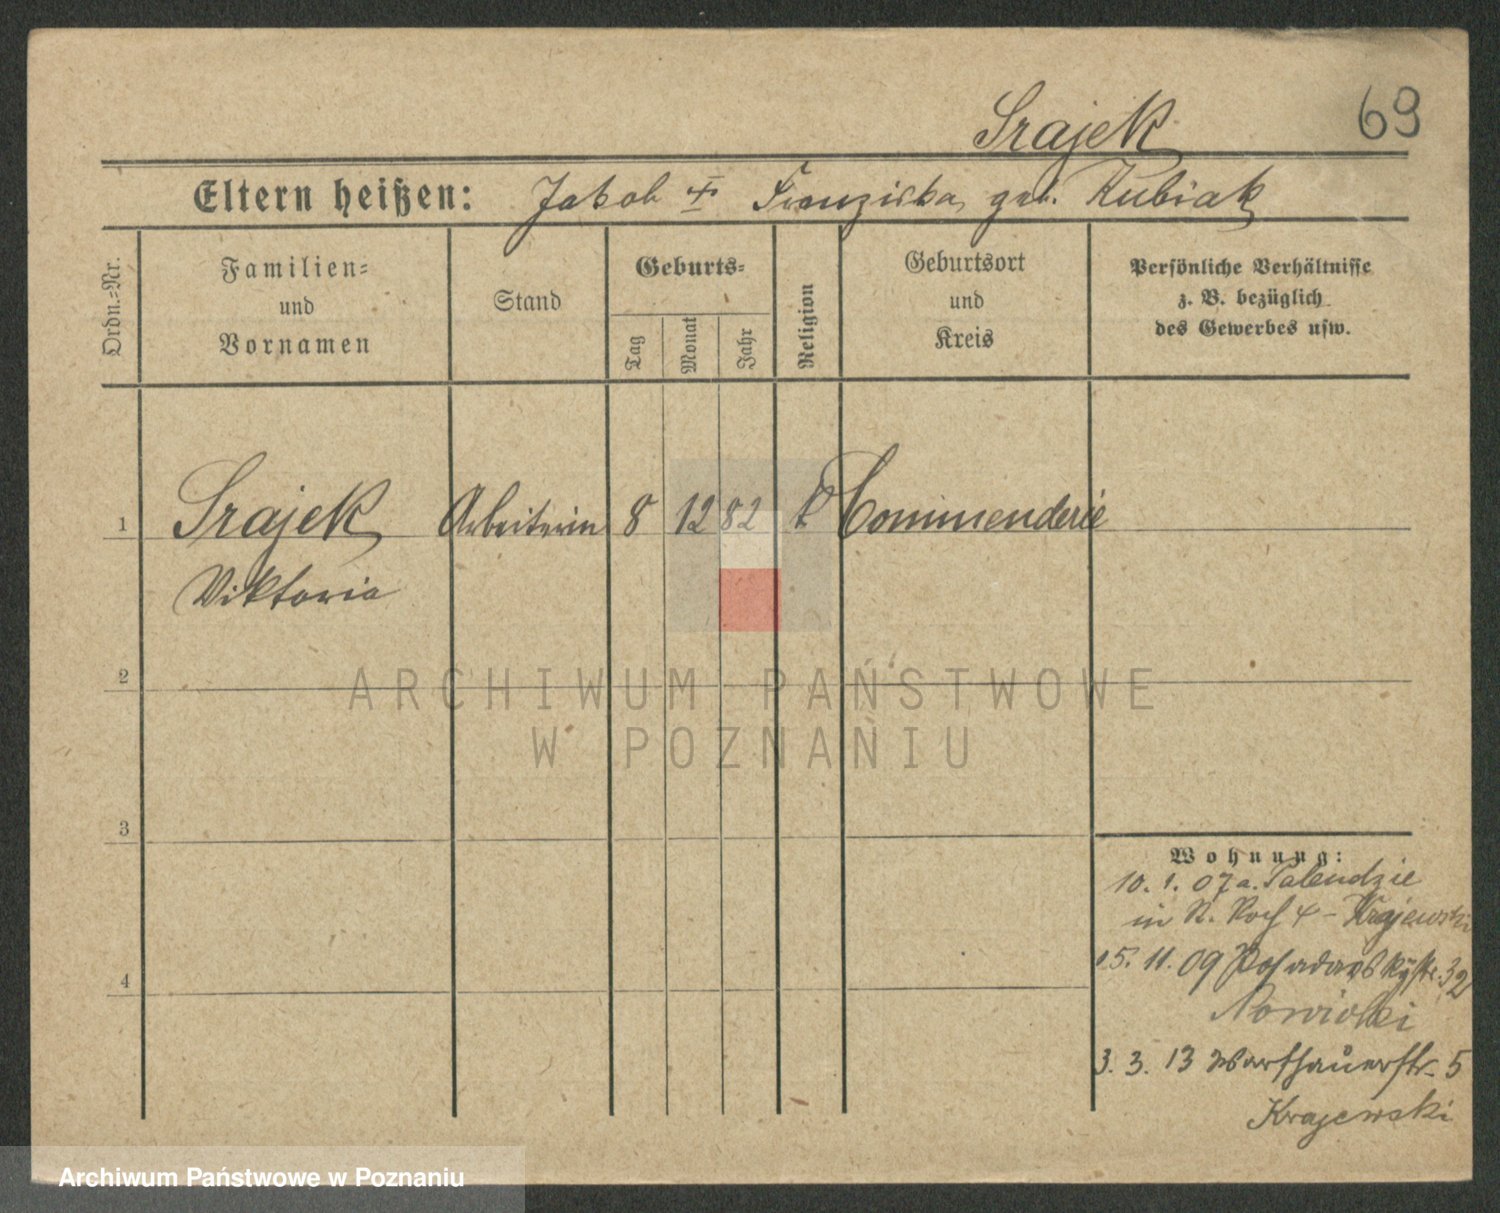 Srajek 69
Eltern heißen: Jakob Franziska geb. Kubiak
Ordn.=Nr.
Familien=
und
Vornamen
Stand
Geburts=
Tag
Monat
Jahr
Religion
Geburtsort
und
Kreis
Persönliche Verhältnisse
z. B. bezüglich
des Gewerbes usw.
1 Srajek Arbeiterin 8 12 82 k Commenderie
Viktoria
2
ARCHIWUM PAŃSTWOWE
W POZNANIU
3
Wohnung:
10. 1. 07 a. Palendzie
in St. Roch 4 - Krajewski
15. 11. 09 Posadowskystr. 32
Nowicki
4
3. 3. 13 Warschauerstr. 5
Krajewski
Archiwum Państwowe w Poznaniu